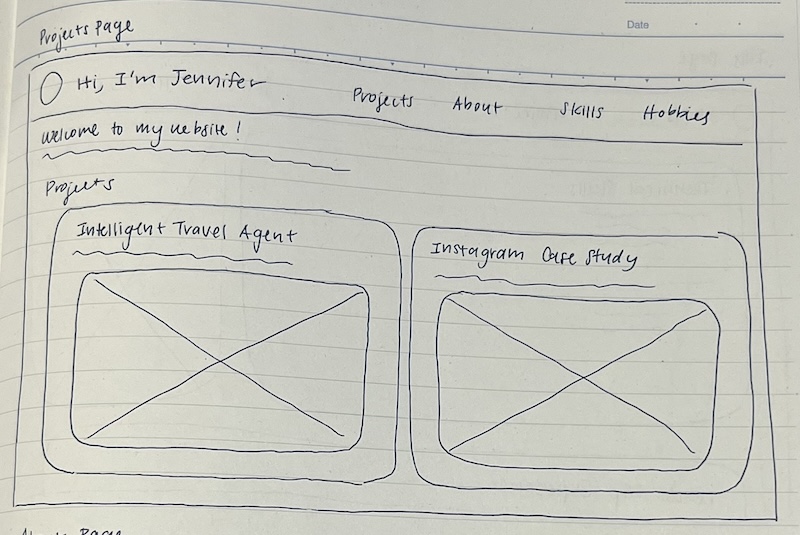 Date
Projects Page
Hi, I'm Jennifer
Projects About Skills Hobbies
welcome to my website!
Projects
Intelligent Travel Agent
Instagram Case Study
Page